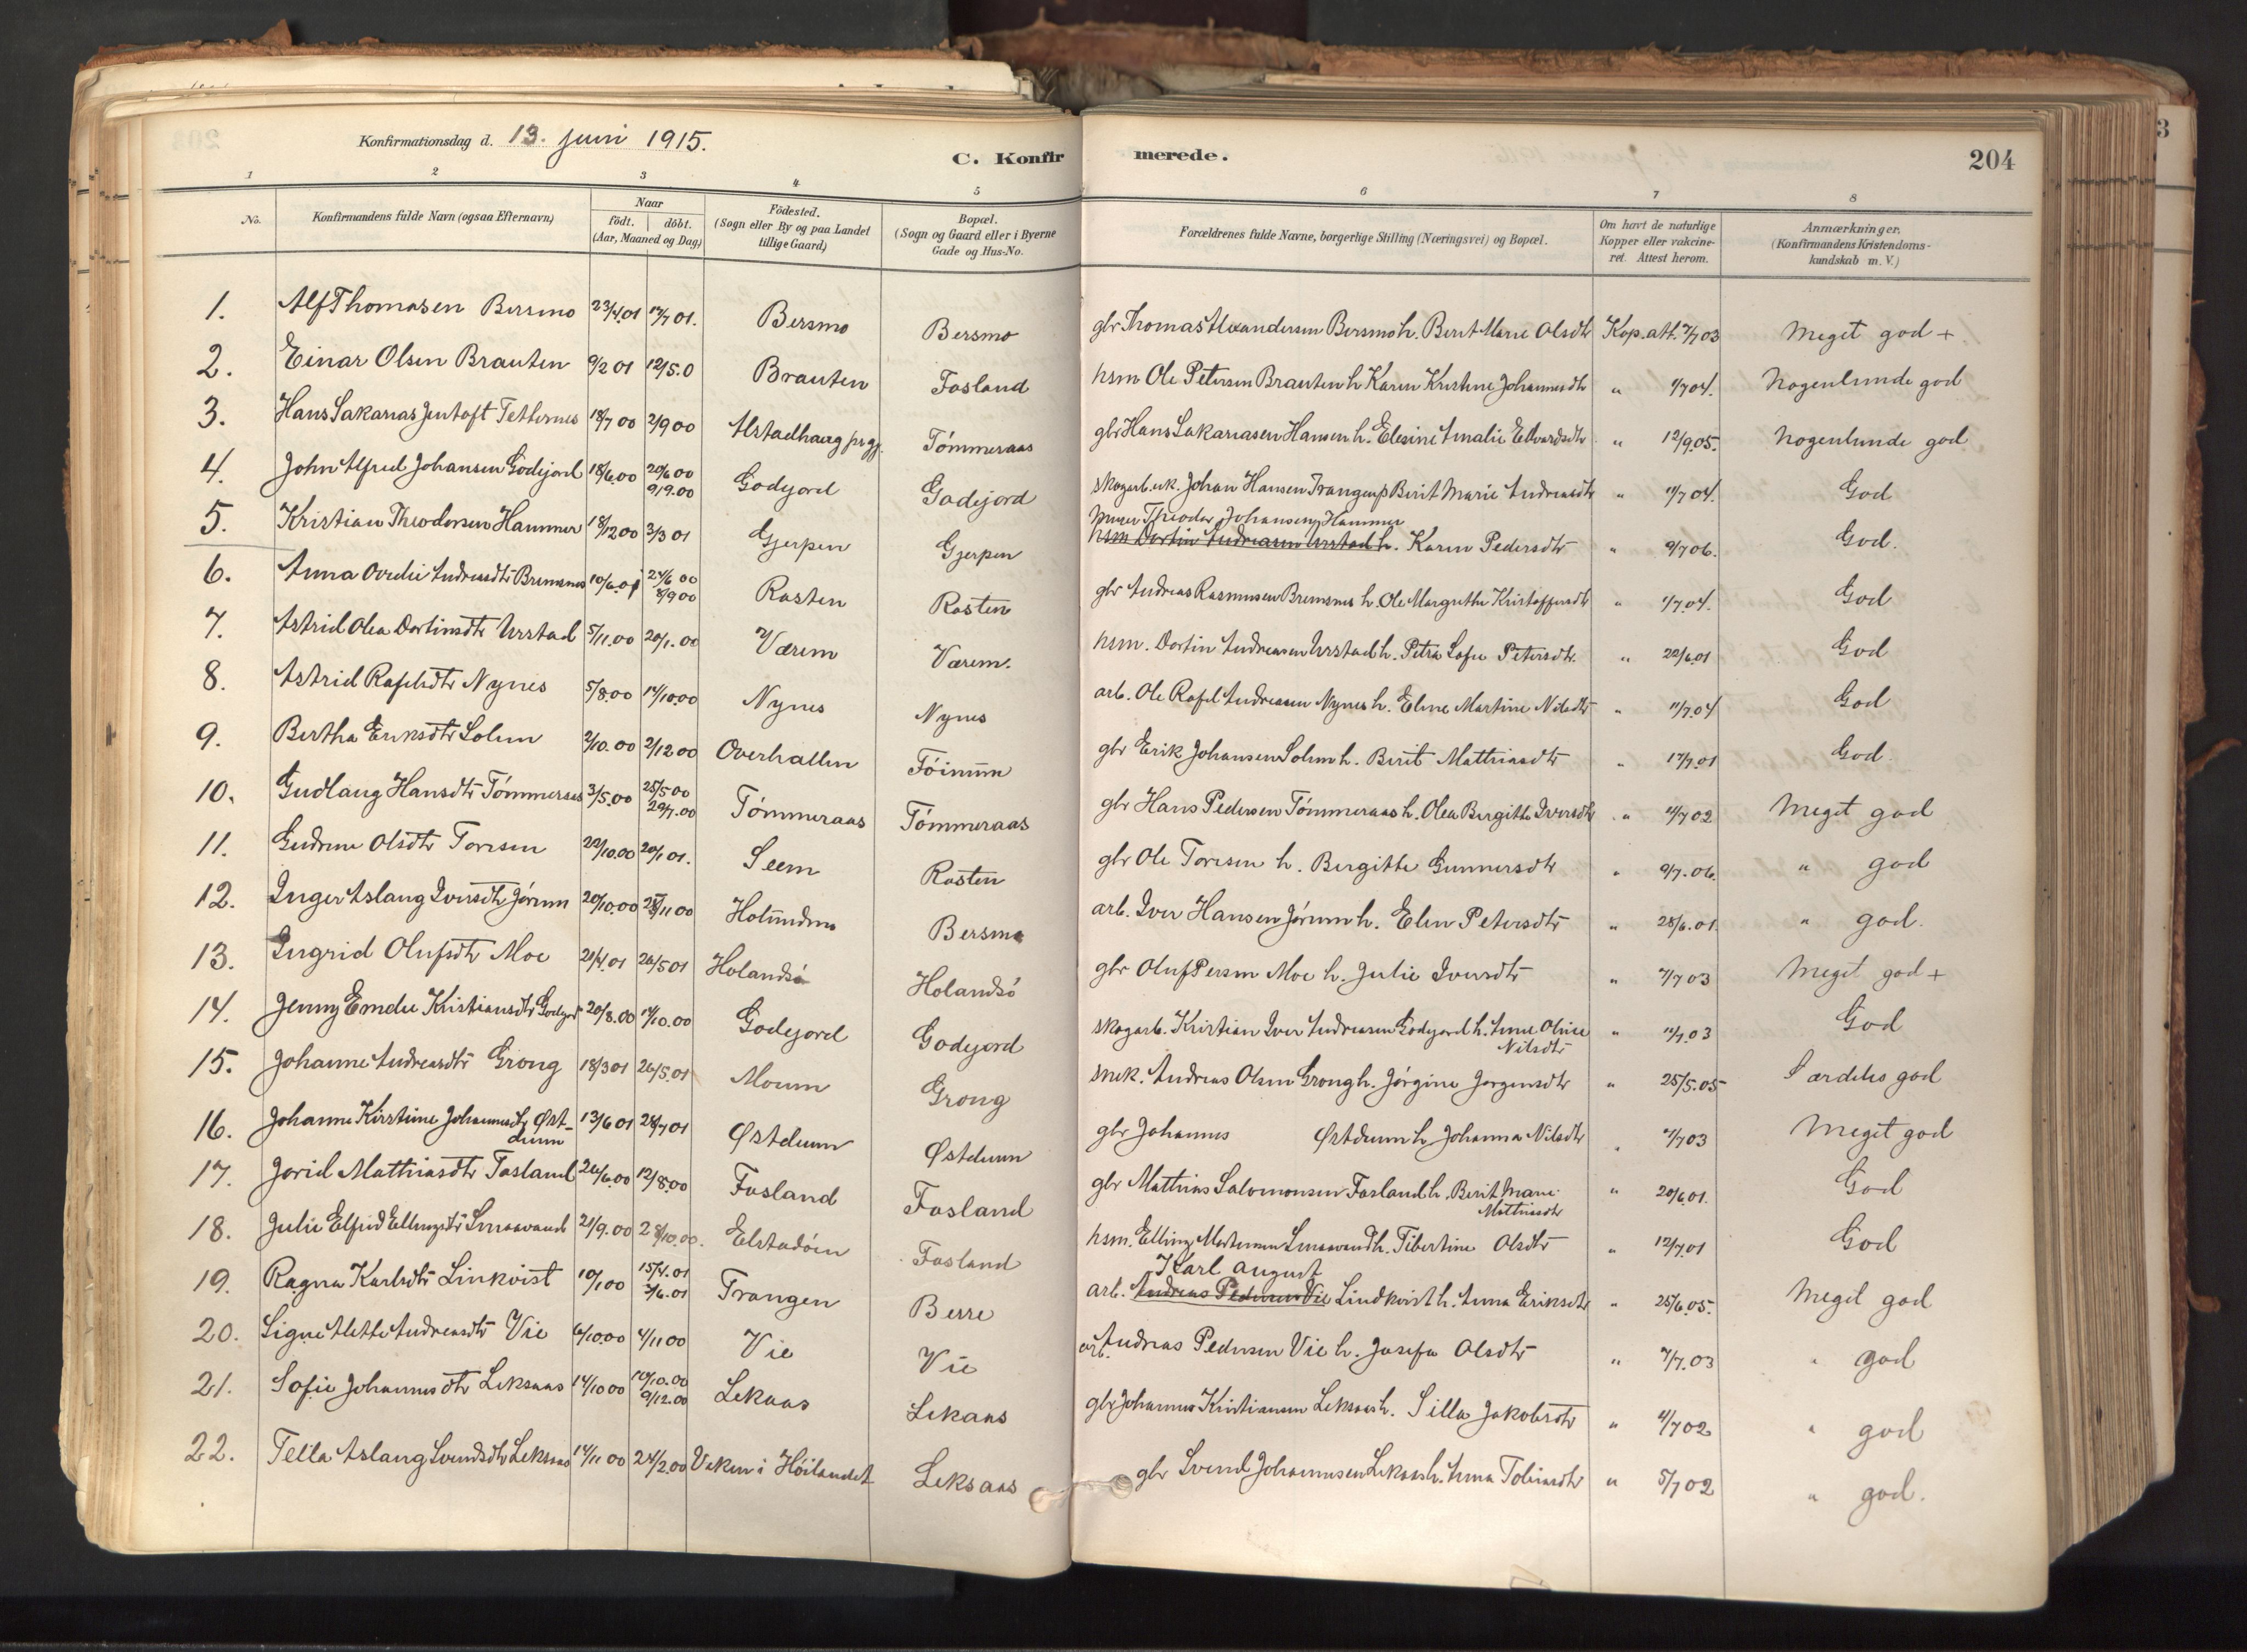 Konfirmationsdag d. 13. juni 1915.
C. Konfirmerede.
204
1 2 3 4 5 6 7 8
No.
Konfirmandens fulde Navn (ogsaa Efternavn)
Naar
födt. döbt.
(Aar, Maaned og Dag)
Födested.
(Sogn eller By og paa Landet
tillige Gaard)
Bopæl.
(Sogn og Gaard eller i Byerne
Gade og Hus-No.
Forældrenes fulde Navne, borgerlige Stilling (Næringsvei) og Bopæl.
Om havt de naturlige
Kopper eller vakcine-
ret. Attest herom.
Anmærkninger.
(Konfirmandens Kristendoms-
kundskab m. V.)
1. Alf Thomasen Bersmo 23/4.01 Bersmo Bersmo gbr Thomas Alexandersen Bersmo h. Berit Marie Olsdtr Kop.att. 7/7 03 Meget god +
2. Einar Olsen Brauten 9/2 01 12/5.0 Brauten Fosland hsm Ole Petersen Brauten h Karen Kristine Johannesdtr " 4/7 04. Nogenlunde god
3. Hans Sakarias Jentoft Tetternes 18/7 00 2/9 00 Alstadhaug prgj. Tömmeraas gbr Hans Sakariasen Hansen h. Elesine Amalie Edvardsdtr " 12/9.05. Nogenlunde god.
4. John Alfred Johansen Godejord 18/6.00 20/6 00 9/9.00 Godejord Godejord skogarb. Johan Hansen Berit Marie Andreasdtr " 11/7 04. God
5. Kristian Theodorsen Hammer 18/12 00 3/3 01 Gjerpen Gjerpen Theodor Johansen Hammer
hsm Dortin Andreasen Urstad h. Karen Pedersdtr " 9/7 06. God.
6. Anna Ovedie Andreasdtr Bremsnes 10/6.01 24/6 00 8/9 00 Rosten Rosten gbr Andreas Rasmusen Bremsnes h. Ole Margrethe Kristoffersdtr " 1/7.04. God
7. Astrid Olea Dortinsdtr Urstad 5/11.00 20/1.00 Værem Værem. hsm. Dortin Andreasen Urstad h. Petra Sofie Petersdtr. " 22/6.01 God
8. Astrid Rafelsdtr Nynes 5/8.00 14/10.00 Nynes Nynes arb. Ole Rafel Andreasen Nynes h. Eline Martine Nilsdtr " 11/7.04 God
9. Bertha Eriksdtr Solum 2/10.00 2/12 00 Overhallen gbr Erik Johansen Solum h. Berit Mathiasdtr " 17/7.01 God.
10. Gudlaug Hansdtr Tömmeraas 3/5.00 25/5 00 29/7.00 Tömmeraas Tömmeraas gbr Hans Pedersen Tömmeraas h. Olea Bergitte Iversdtr " 4/7 02 Meget god
11. Gudrun Olsdtr Toresen 22/10.00 20/1 01. Seem Rosten gbr Ole Toresen h. Bergitte Gunnersdtr " 9/7.06. " god
12. Inger Aslaug Iversdtr Jörum 20/10.00 25/11 00 Bersmo arb. Iver Hansen Jörum h. Elen Petersdtr " 28/6.01. " god.
13. Ingrid Olufsdtr Moe 21/4.01 26/5 01 Holandsö Holandsö gbr Oluf Persen Moe h. Julie Iversdtr " 7/7 03 Meget god +
14. Jenny Emelie Kristiansdtr Godejord 20/8.00 14/10.00 Godejord Godejord skogarb. Kristian Iver Andreasen Godejord h. Anne Oline
Nilsdtr " 11/7.03 God
15. Johanne Andreasdtr Grong 18/3 01 26/5.01 Moum Grong snek. Andreas Olsen Grong h. Jörgine Jörgensdtr " 25/5.05 Særdeles god
16. Johanne Kirstine Johannesdtr Øst-
duun 13/6 01 28/7 01 Østduun Østduun gbr Johannes Østduun h Johanna Nilsdtr " 7/7 03 Meget god
17. Jorid Mathiasdtr Fosland 26/6.00 12/8.00 Fosland Fosland gbr Mathias Salomonsen Fosland h. Berit Marie
Mathiasdtr " 20/6.01. God
18. Julie Elfrid Ellingsdtr 21/9.00 28/10.00. Elstadöen Fosland hsm. Elling h. Tibertine Olsdtr " 12/7.01 God
19. Ragna Karlsdtr Linkvist 10/1 00 15/4.01 3/6.01 Trangen Berre Karl August
arb. Andreas Pedersen Vie Lindkvist h. Anna Eriksdtr " 25/6.05. Meget god
20. Signe Alette Andreasdtr Vie 6/10.00 4/11 00 Vie Vie arb. Andreas Pedersen Vie h. Josefa Olsdtr " 7/7.03 " god
21. Sofie Johannesdtr Leksaas 14/10 00 10/10.00 9/12.00 Lekaas Lekaas gbr Johannes Kristiansen Leksaas h. Silla Jakobsdtr " 4/7 02 " god
22. Tella Aslaug Svendsdtr Leksaas 14/11 00 24/2.00 Veken i Höilandet Leksaas gbr Svend Johannesen Leksaas h. Anna Tobiasdtr " 5/7 02 " god.